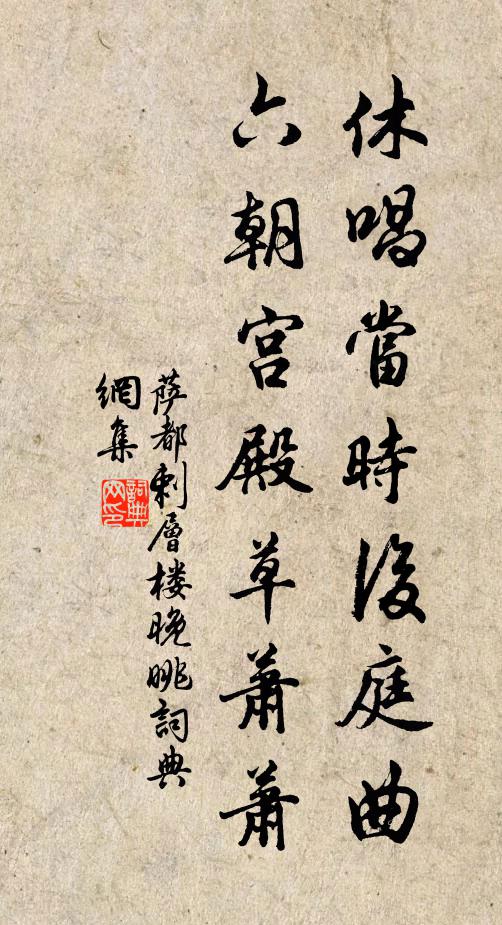 休唱當時後庭曲
六朝宫殿草蕭蕭
薩都剌層楼晚眺詞典
網集
詞典
网印